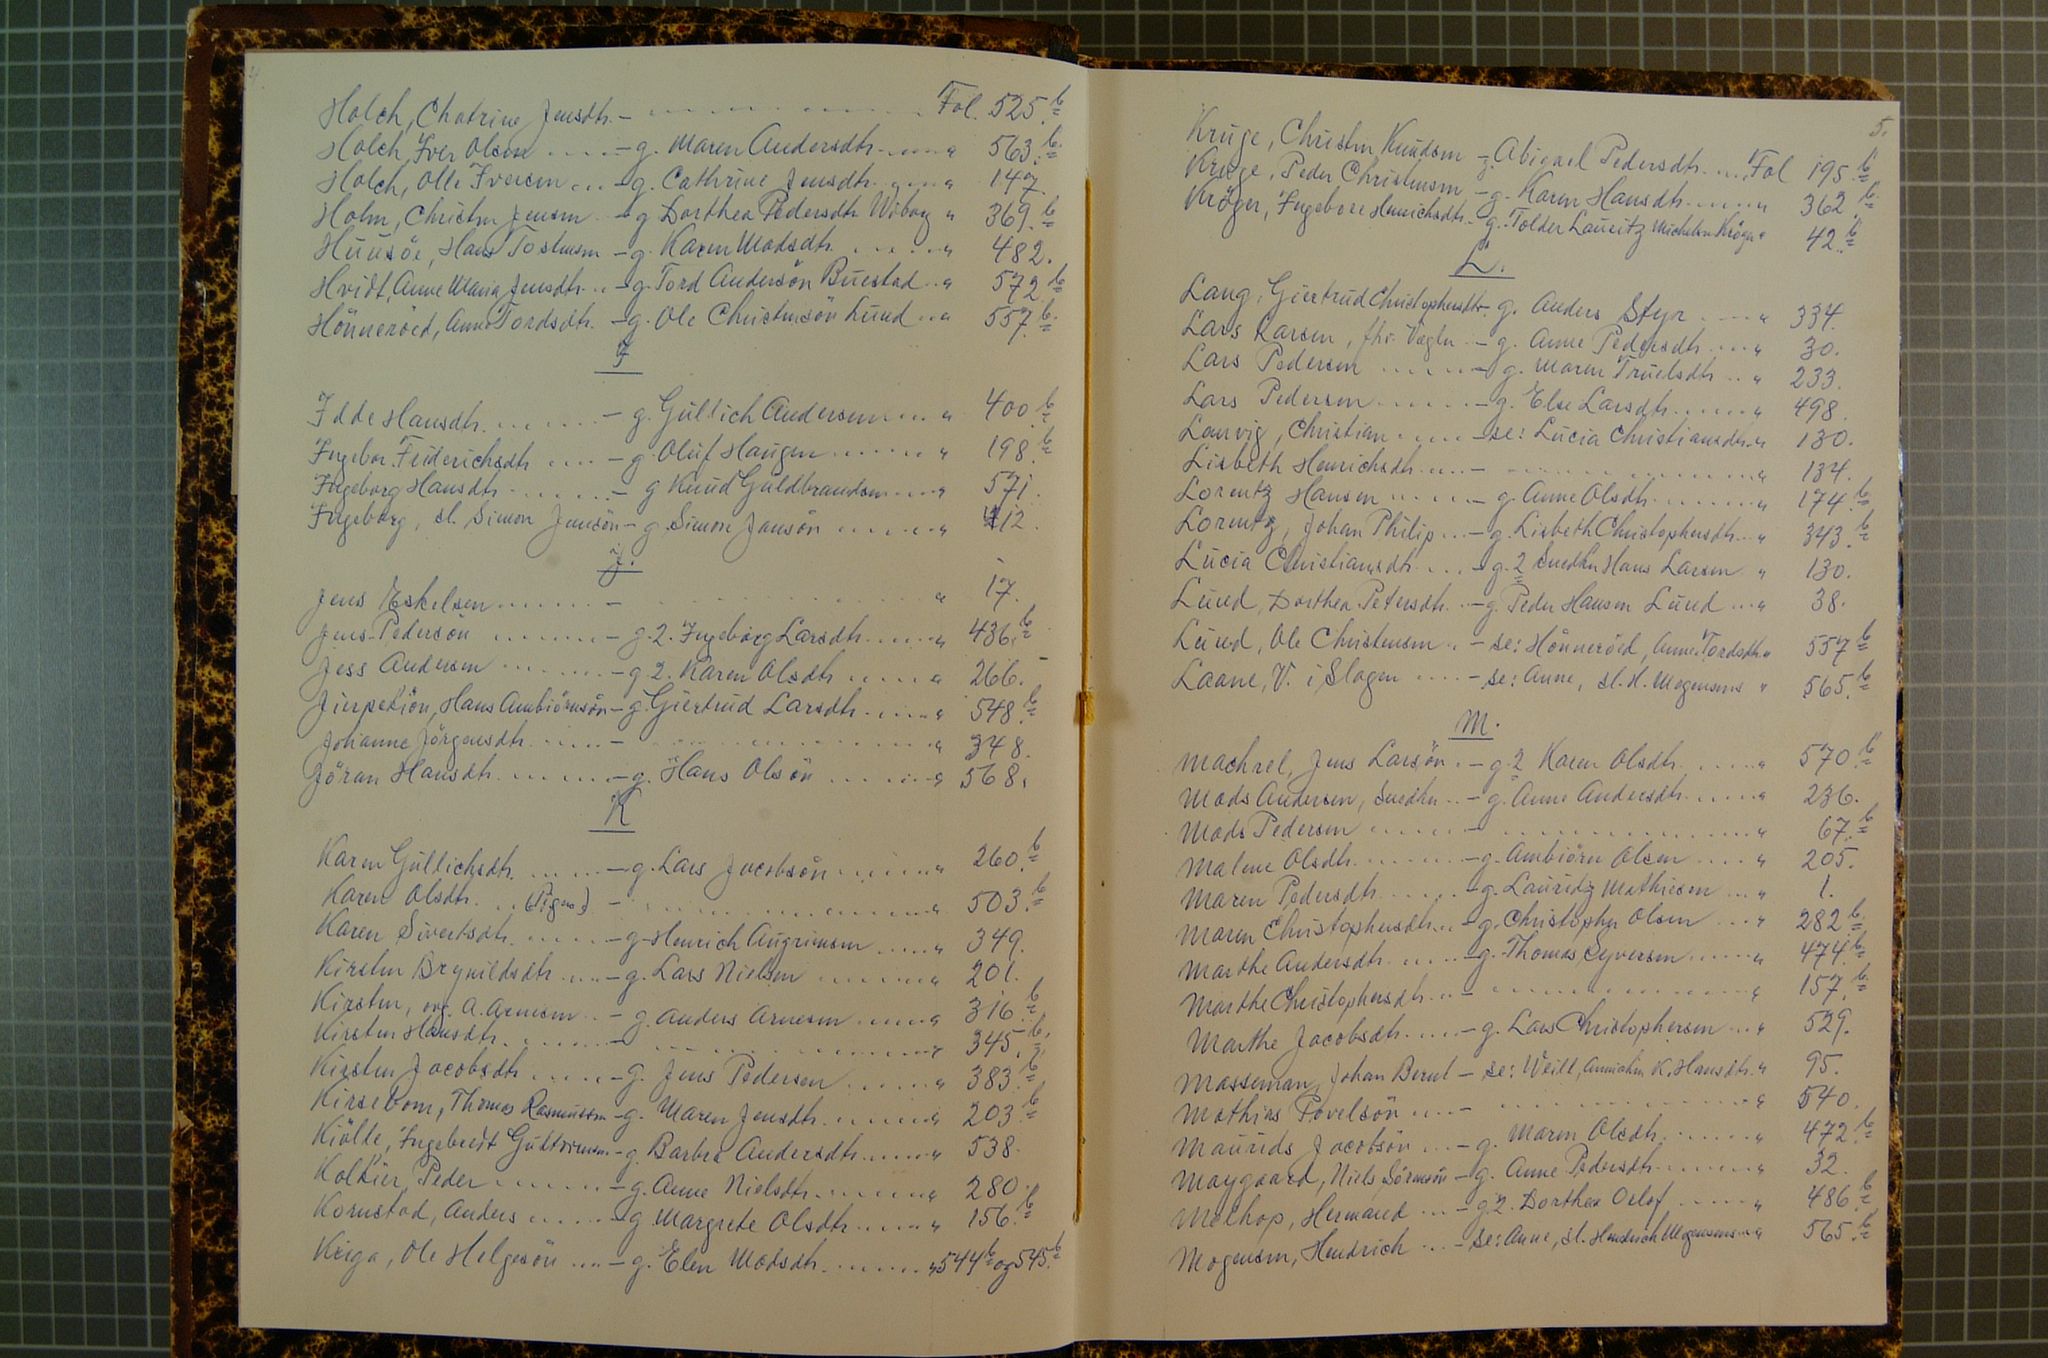 4
Holch, Chatrine Jensdtr. - Fol. 525.b
Holch, Iver Olsen - g. Maren Andersdtr. " 563.b
Holch, Olle Iversen - g. Cathrine Jensdtr. " 147.
Holm, Christen Jensen - g Dorthea Pedersdtr. Wiborg " 369.b
Huusöe, Hans Tostensen - g. Karen Madsdtr. " 482.
Hvidt, Anne Maria Jensdtr. - g. Tord Andersön Buestad " 572.b
Hönneröed, Anne Tordsdtr. - g. Ole Christensön Lund " 557.b
I
Idde Hansdtr. - g. Gullich Andersen " 400.b
Ingebor. Friderichsdtr - g. Oluf Haugen " 198.b
Ingeborg Hansdtr - g Knud Guldbrandsen " 571.
Ingeborg, sl. Simon Jensön - g. Simon Jansön " 412.
J.
Jens Eskelsen - " 17.
Jens Pedersön - g. 2. Ingeborg Larsdtr. " 436.b
Jess Andersen - g 2. Karen Olsdtr. " 266.
Hans Ambiörnsön - g. Giertrud Larsdtr. " 548.b
Johanne Jörgensdtr. - " 348.
Jöran Hansdtr. - g. Hans Olsön " 568.
K
Karen Gullichsdtr. - g. Lars Jacobsön " 260.b
Karen Olsdtr. (Pige) - " 503.b
Karen Sivertsdtr. - g. Henrich Augrimsen " 349.
Kirsten Brynildsdtr. - g. Lars Nielsen " 201.
Kirsten, A. Arnesen - g. Anders Arnesen " 316.b
Kirsten Hansdtr. - " 345.b
Kirsten Jacobsdtr. - g. Jens Pedersen " 383.b
Kirsebom, Thomas Rasmussen - g. Maren Jensdtr. " 203.b
Kiölte, Ingebredt Guttormsen - g. Barbra Andersdtr. " 538.
Kolkier, Peder - g. Anne Nielsdtr. " 280.
Kornstad, Anders - g Margrete Olsdtr. " 156.b
Ole Helgesön - g. Elen Madsdtr. " 544b og 545.b
5.
Kruge, Christen Knudsen - g. Abigael Pedersdtr. Fol 195.b
Kruge, Peder Christensen - g. Karen Hansdtr. " 362.b
Kröger, Ingebore Henrichsdtr. - g. Tolder Lauritz Michelsen Kröger " 42.b
L.
Lang, Giertrud Christophersdtr. - g. Anders Styr " 334.
Lars Larsen, - g. Anne Pedersdtr. " 30.
Lars Pedersen - g. Maren Truelsdtr. " 233.
Lars Pedersen - g. Else Larsdtr. " 498.
Laurvig, Christian - se: Lucia Christiansdtr. " 130.
Lisbeth Henrichsdtr. - " 134.
Lorentz Hansen - g. Anne Olsdtr. " 174.b
Lorentz, Johan Philip - g. Lisbeth Christophersdtr. " 343.b
Lucia Christiansdtr. - g. 2 Snedker Hans Larsen " 130.
Lund, Dorthea Petersdtr. - g. Peder Hansen Lund " 38.
Lund, Ole Christensen - se: Hönneröed, Anne Tordsdtr. " 557.b
Laane, V. i Slagen - se: Anne, sl. H. Mogensens " 565.b
M.
Machrel, Jens Larsön - g. 2 Karen Olsdtr. " 570.b
Mads Andersen, Snedker - g. Anne Andersdtr. " 236.
Mads Pedersen - " 67.b
Malene Olsdtr. - g. Ambiörn Olsen " 205.
Maren Pedersdtr. - g. Lauridz Mathiesen " 1.
Maren Christophersdtr. - g. Christopher Olsen " 282.b
Marthe Andersdtr. - g. Thomas Syversen " 474.b
Marthe Christophersdtr. - " 157.b
Marthe Jacobsdtr. - g. Lars Christophersen " 529.
Masseman, Johan Bernt - se: Weill, Annichen K. Hansdtr. " 95.
Mathias Povelsön - " 540.
Maurids Jacobsön - g. Maren Olsdtr. " 472.b
Maygaard, Niels Sörensön - g. Anne Pedersdtr. " 32.
Melhop, Hermand - g. 2. Dorthea Orlof " 486.b
Mogensen, Hendrich - se: Anne, sl. Hendrich Mogensens " 565.b